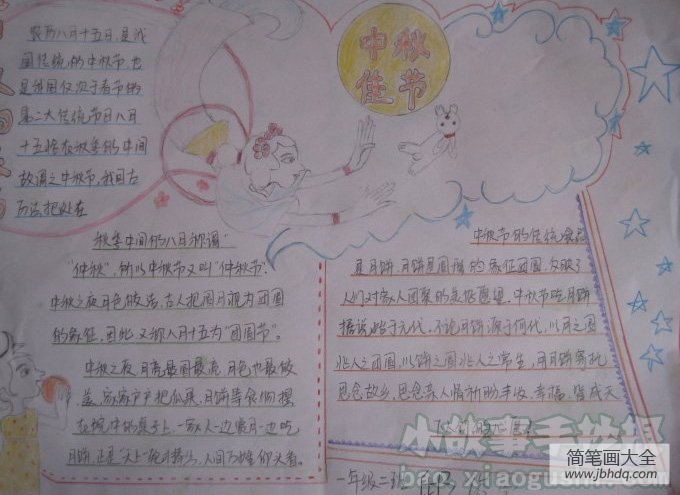 中秋
佳节
农历八月十五日,是我
国传统的中秋节,也
是我国仅次于春节的
第二大传统节日八月
十五恰在秋季的中间
故谓之中秋节,我国古
历法把处在
秋季中间的八月称谓"
"仲秋",所以中秋节又叫"仲秋节"。
中秋之夜月色皎洁,古人把圆月视为团圆
的象征,因此,又称八月十五为"团圆节"。
中秋之夜,月亮最圆最亮,月色也最皎
洁,家家户户把瓜果、月饼等食物摆
在院中的桌子上,一家人一边赏月一边吃
月饼,正是"天上一轮
中秋节的传统食品
是月饼,月饼是圆形的,象征团圆,反映了
人们对家人团聚的美好愿望。中秋节吃月饼
据说始于元代,不论月饼源于何代,以月之圆
兆人之团圆,以饼之圆兆人之常生,用月饼寄托
思念故乡,思念亲人情祈盼丰收、幸福,皆成天
下人们的心愿
一年级二班
小故事手抄报
bao.xiaogushi
简笔画大全
www.jbhdq.com